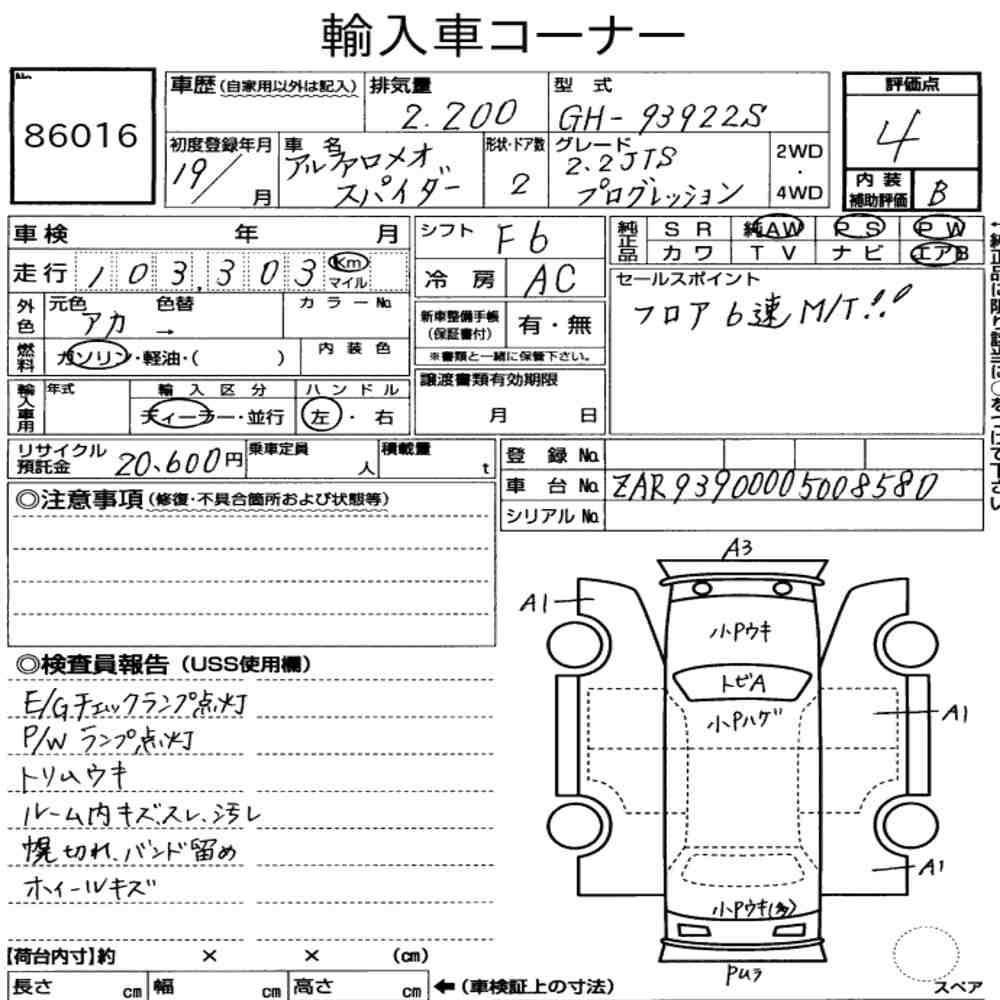 輸入車コーナー
No.
86016
車歴 (自家用以外は記入)
排気量
2.200
型式
GH-93922S
評価点
4
初度登録年月
19/ 月
車名
アルファロメオ
スパイダー
形状・ドア数
2
グレード
2.2JTS
プログレッション
2WD
・
4WD
内装
補助評価
B
車検 年 月
シフト
F6
純正品
SR 純AW PS PW
カワ TV ナビ エアB
走行 103,303 Km
マイル
冷房
AC
セールスポイント
フロア6速M/T!!
外色
元色 色替 カラーNo.
アカ →
新車整備手帳
(保証書付)
有・無
※書類と一緒に保管下さい。
燃料
ガソリン・軽油・( )
内装色
譲渡書類有効期限
月 日
輸入車用
年式
輸入区分
ディーラー・並行
ハンドル
左・右
リサイクル
預託金
20,600円
乗車定員
人
積載量
t
登録No.
車台No.
ZAR93900005008580
シリアルNo.
◎注意事項(修復・不具合箇所および状態等)
◎検査員報告(USS使用欄)
E/Gチェックランプ点灯
P/Wランプ点灯
トリムウキ
ルーム内キズスレ、汚レ
幌切れ、バンド留め
ホイールキズ
A3
A1
小Pウキ
トビA
小Pハゲ
A1
A1
小Pウキ(多)
PUラ
スペア
【荷台内寸】約 × × (cm)
長さ cm 幅 cm 高さ cm
←(車検証上の寸法)